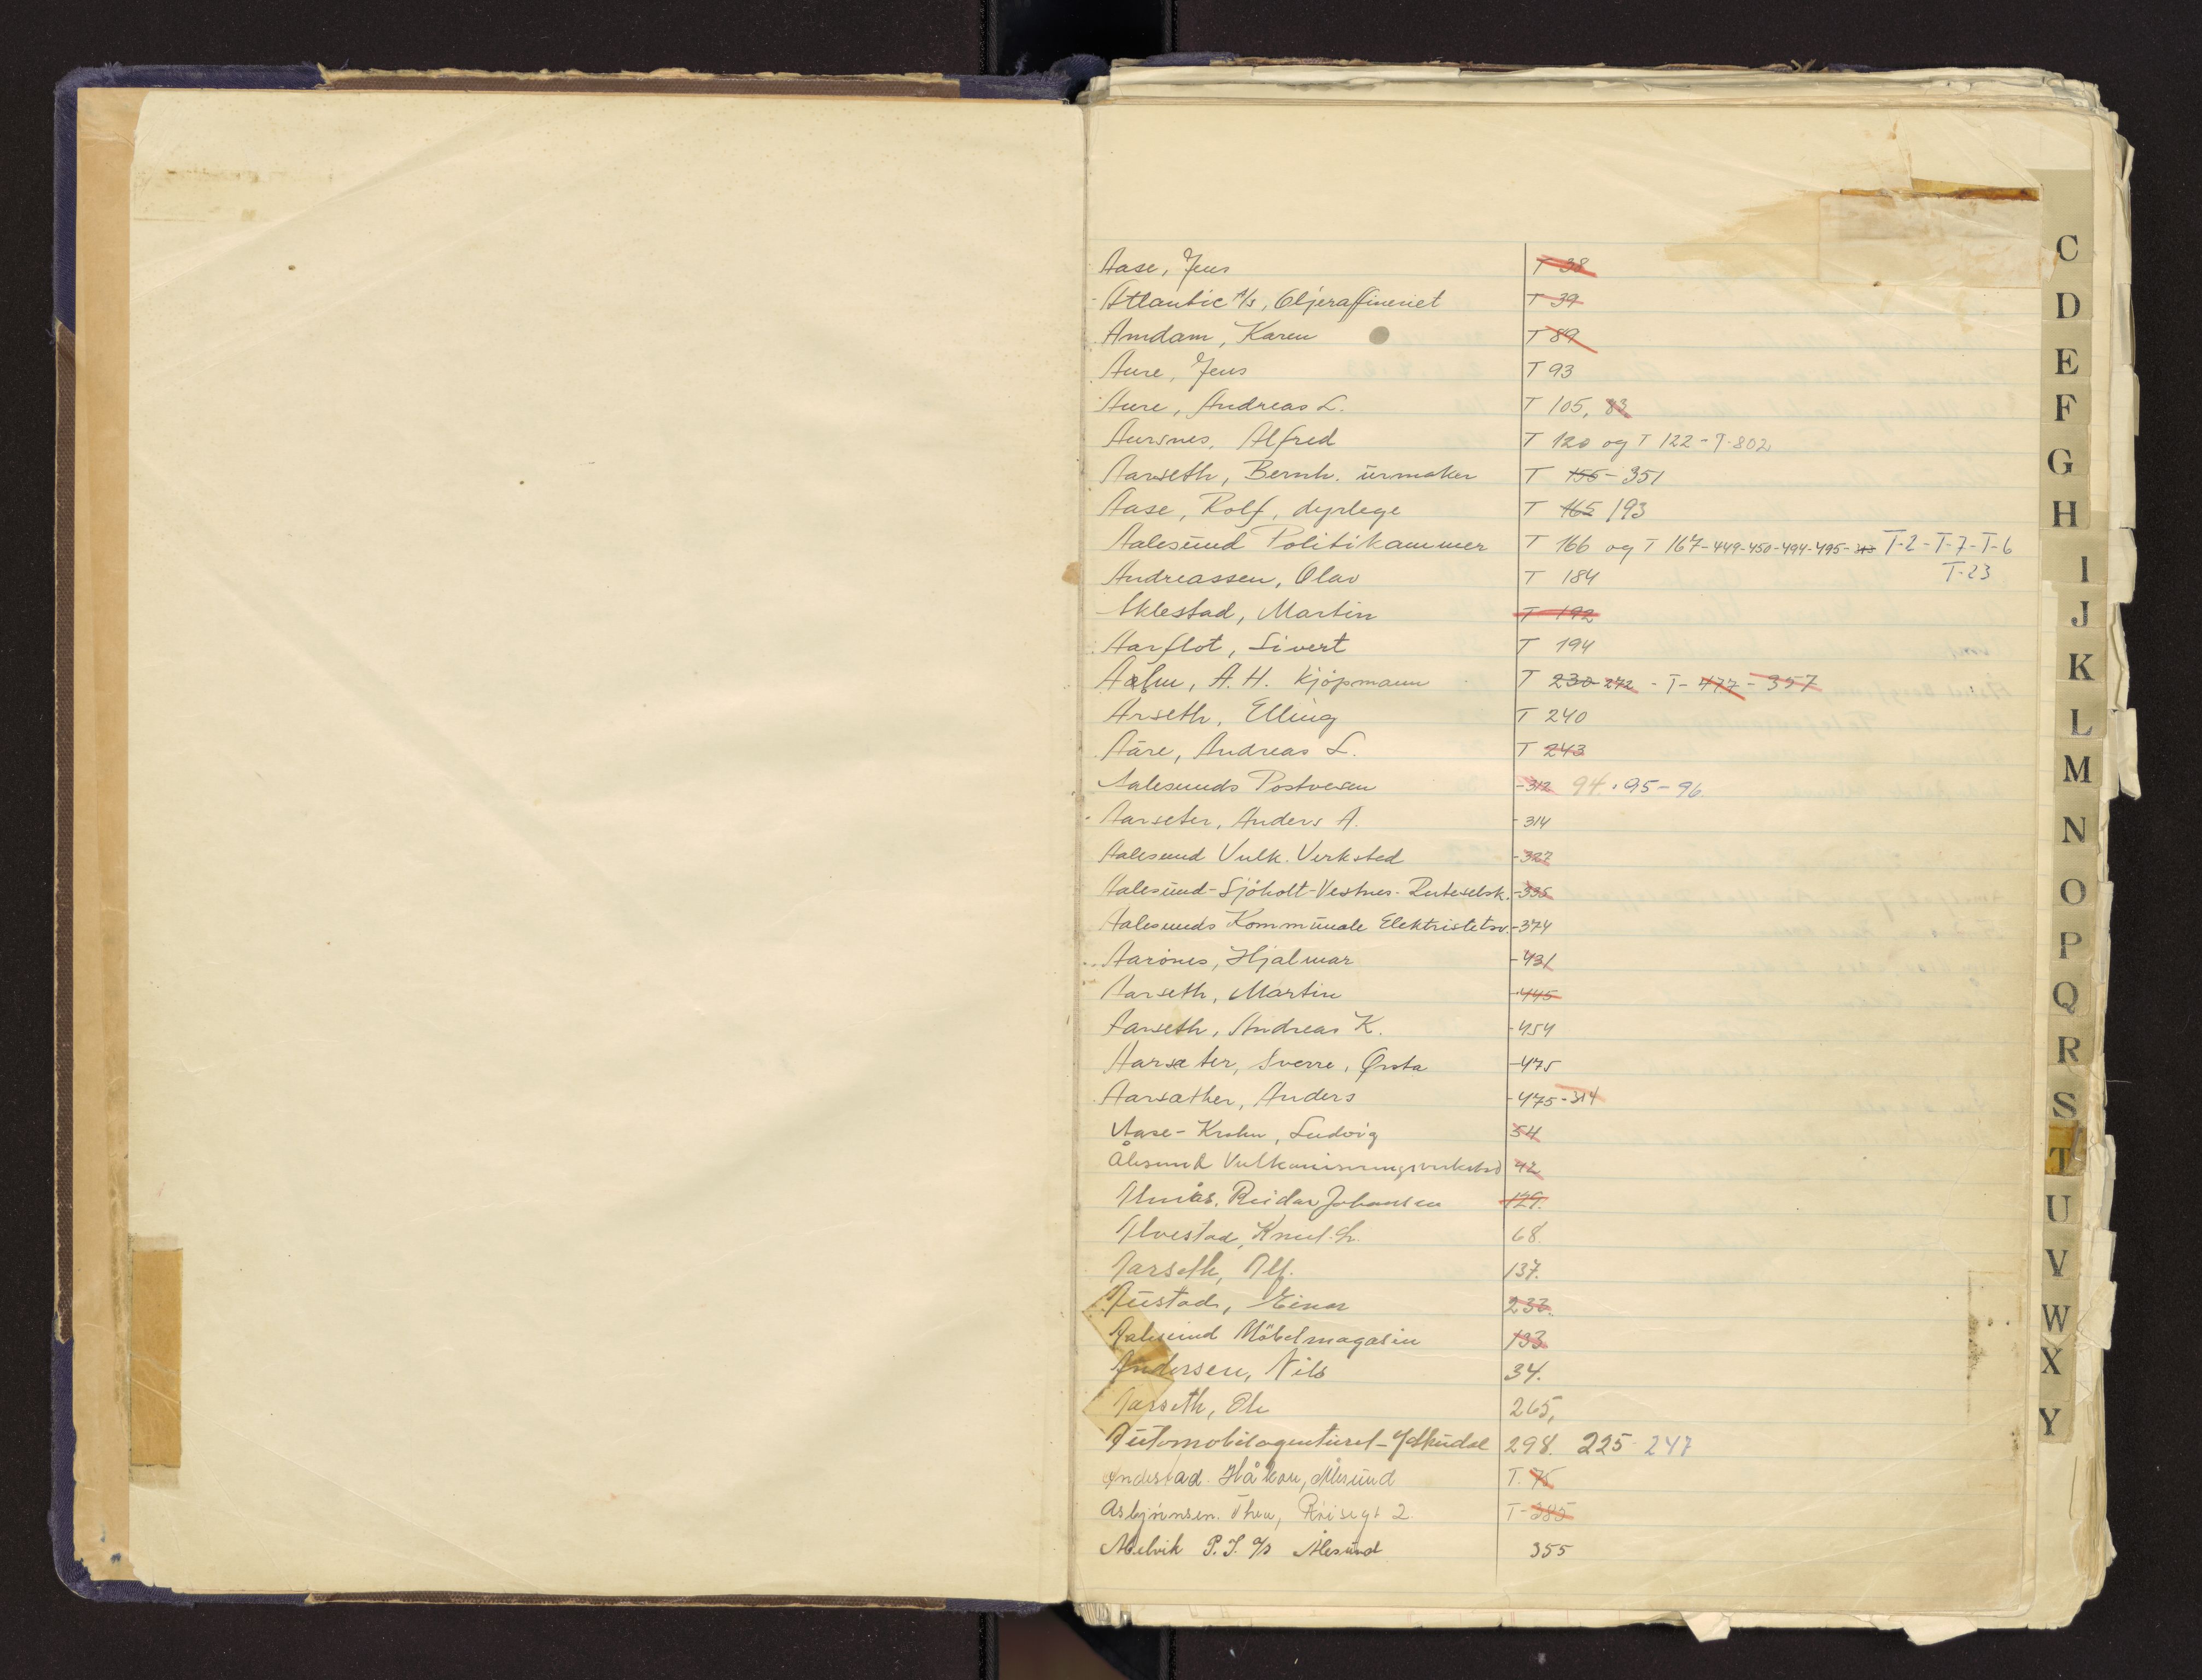 Aase, Jens T 38
Atlantic A/s, Oljeraffineriet T 39
Amdam, Karen T 89
Aure, Jens T 93
Aure, Andreas L. T 105, 83
Aursnes, Alfred T 120 og T 122 - T-802
Aarseth, Bernh. urmaker T 156 - 351
Aase, Rolf, dyrlege T 165 193
Aalesund Politikammer T 166 og T 167-449-450-494-495- T-2-T-7-T-6
T-23
Andreassen, Olav T 184
Aklestad, Martin T 192
Aarflot, Sivert T 194
A. H. kjöpmann T 230-272 - T-477-357
Arseth, Elling T 240
Aure, Andreas L. T 243
Aalesunds Postvesen -312 94.-95-96
Aarseter, Anders A. -314
Aalesund Vulk. Verksted -327
Aalesund-Sjöholt-Vestnes-Ruteselsk. -335
Aalesunds Kommunale Elektrisitetsv. -374
Aarönes, Hjalmar -431
Aarseth, Martin -445
Aarseth, Andreas K. -454
Aarseter, Sverre, Ørsta -475
Aarsæther, Anders -475-314
Aase-Krohn, Ludvig 54
Ålesund Vulkaniseringsverksted 42
Almås, Reidar Johansen 129.
Alvestad, Knut. 68.
Aarseth, Alf. 137.
Austad, Einar 233.
Aalesund Möbelmagasin 133
Andersen, Nils 34.
Aarseth, Ole 265,
Automobilagenturet- 298. 225-247
Andestad. Håkon, Ålesund T. 75
Asbjörnsen. Thea, 2. T-385
Abelvik P. J. A/s Ålesund 355
C
D
E
F
G
H
I
J
K
L
M
N
O
P
Q
R
S
T
U
V
W
X
Y